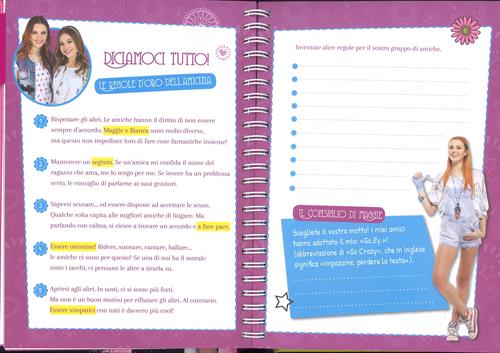 DICIAMOCI TUTTO!
LE REGOLE D'ORO DELL'AMICIZIA
1 Rispettare gli altri. Le amiche hanno il diritto di non essere
sempre d'accordo. Maggie e Bianca sono molto diverse,
ma questo non impedisce loro di fare cose fantastiche insieme!
2 Mantenere un segreto. Se un'amica mi confida il nome del
ragazzo che ama, me lo tengo per me. Se invece ha un problema
serio, le consiglio di parlarne ai suoi genitori.
3 Sapersi scusare... ed essere disposte ad accettare le scuse.
Qualche volta capita alle migliori amiche di litigare. Ma
parlando con calma, si riesce a trovare un accordo e a fare pace.
4 Essere ottimiste! Ridere, suonare, cantare, ballare...
le amiche ci sono per questo! Se una di noi ha il morale
sotto i tacchi, ci pensano le altre a tirarla su.
5 Aprirsi agli altri. In tanti, ci si sente più forti.
Ma non è un buon motivo per rifiutare gli altri. Al contrario.
Essere simpatici con tutti è davvero più cool!
Inventate altre regole per il vostro gruppo di amiche.
IL CONSIGLIO DI MAGGIE
Scegliete il vostro motto! I miei amici
hanno adottato il mio: «Go.Zy.»!
(abbreviazione di «Go Crazy», che in inglese
significa «impazzire, perdere la testa»).